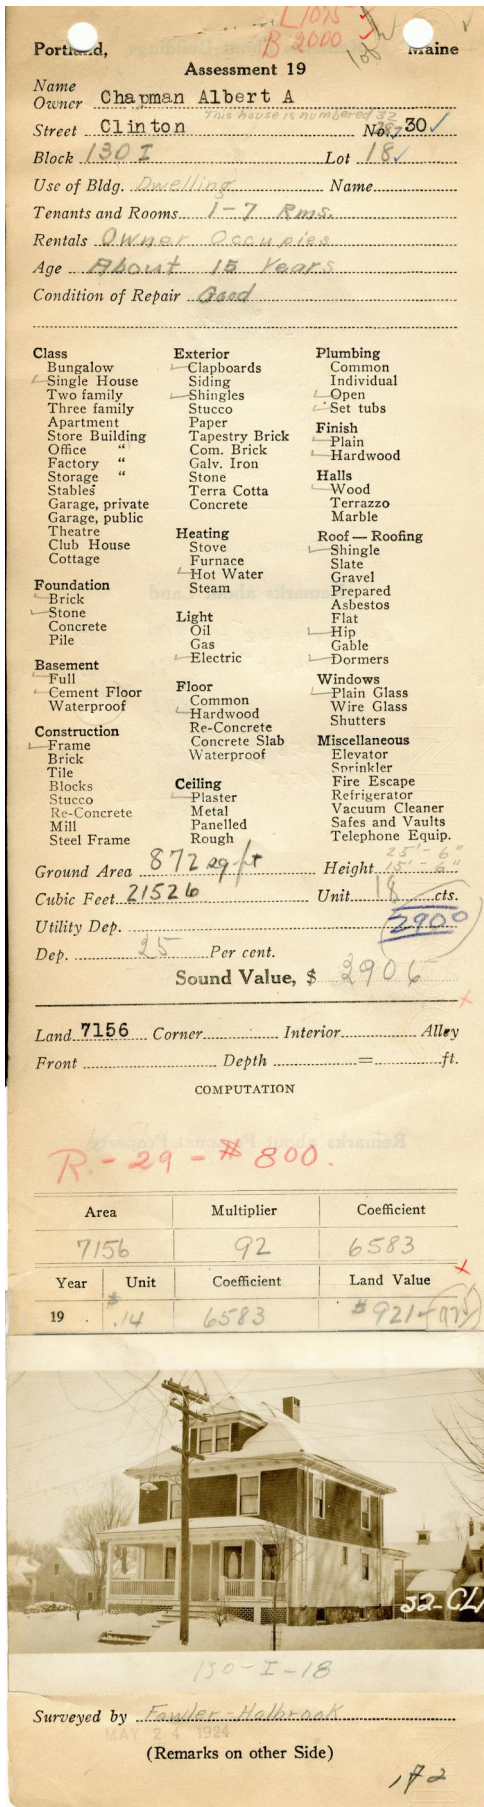 L 1075
B 2000
Portland, Maine
Assessment 19
Name
Owner Chapman Albert A
This house is numbered 32
Street Clinton No. 30
Block 130 I Lot 18
Use of Bldg. Dwelling Name
Tenants and Rooms 1-7 Rms.
Rentals Owner Occupies
Age About 15 Years
Condition of Repair Good
Class
Bungalow
Single House
Two family
Three family
Apartment
Store Building
Office "
Factory "
Storage "
Stables
Garage, private
Garage, public
Theatre
Club House
Cottage
Foundation
Brick
Stone
Concrete
Pile
Basement
Full
Cement Floor
Waterproof
Construction
Frame
Brick
Tile
Blocks
Stucco
Re-Concrete
Mill
Steel Frame
Exterior
Clapboards
Siding
Shingles
Stucco
Paper
Tapestry Brick
Com. Brick
Galv. Iron
Stone
Terra Cotta
Concrete
Heating
Stove
Furnace
Hot Water
Steam
Light
Oil
Gas
Electric
Floor
Common
Hardwood
Re-Concrete
Concrete Slab
Waterproof
Ceiling
Plaster
Metal
Panelled
Rough
Plumbing
Common
Individual
Open
Set tubs
Finish
Plain
Hardwood
Halls
Wood
Terrazzo
Marble
Roof — Roofing
Shingle
Slate
Gravel
Prepared
Asbestos
Flat
Hip
Gable
Dormers
Windows
Plain Glass
Wire Glass
Shutters
Miscellaneous
Elevator
Sprinkler
Fire Escape
Refrigerator
Vacuum Cleaner
Safes and Vaults
Telephone Equip.
25'-6"
Ground Area 872 sq ft Height 15'-6"
Cubic Feet 21526 Unit 18 cts.
Utility Dep. 2900
Dep. 25 Per cent.
Sound Value, $ 2906
Land 7156 Corner Interior Alley
Front Depth = ft.
COMPUTATION
R.-29-$800.
Area Multiplier Coefficient
7156 92 6583
Year Unit Coefficient Land Value
19 $.14 6583 $921
32-CL
130-I-18
Surveyed by Fowler-Holbrook
MAY 24 1924
(Remarks on other Side)
172